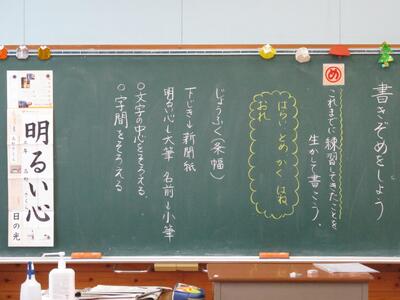 書きぞめをしよう
め
これまでに練習してきたことを
生かして書こう。
はらい とめ かく はね
おれ
じょうふく(条幅)
下じき→新聞紙
明るい心→大筆 名前→小筆
○文字の中心をそろえる
○字間をそろえる
明るい心
日の光